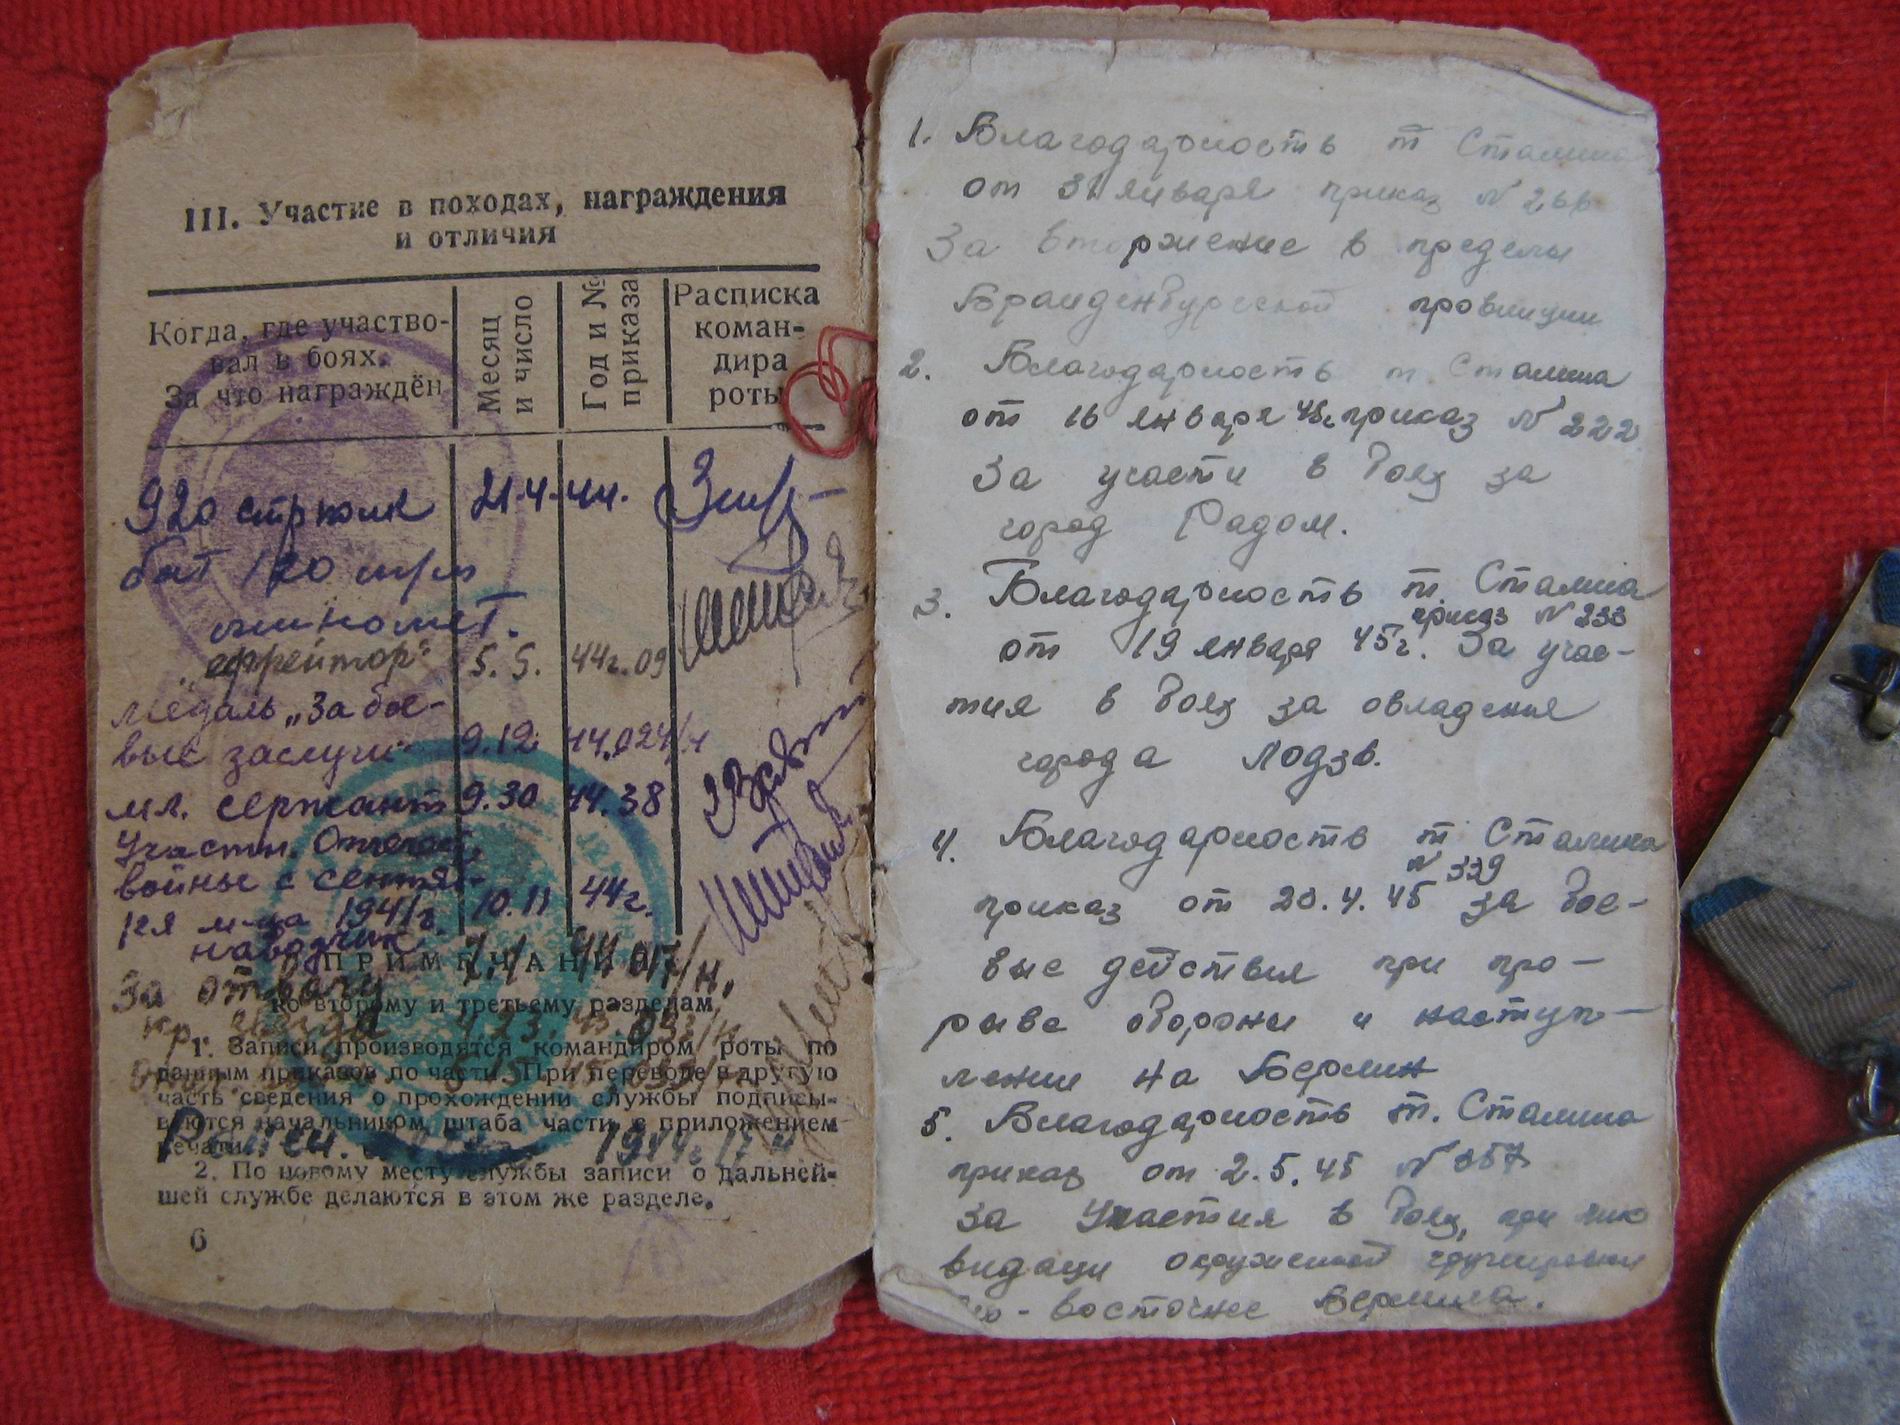 III. Участие в походах, награждения
и отличия
Когда, где участво-
вал в боях.
За что награждён
Месяц
и число
Год и №
приказа
Расписка
коман-
дира
роты
920 стр полк 21.4. 44.
бат 120 м/м
миномет.
„ефрейтор" 5.5. 44г. 09
Медаль „За бое-
вые заслуги" 9.12 44.024/н
мл. сержант 9.30 44.38
Участн. Отечеств.
войны с сентяб-
ря м-ца 1941г. 10.11 44г.
наводчик
За отвагу 7.1 44.017/н.
ПРИМЕЧАНИЯ
ко второму и третьему разделам
Кр. Звезда
1. Записи производятся командиром роты по
данным приказов по части. При переводе в другую
часть сведения о прохождении службы подписы-
ваются начальником штаба части с приложением
печати.
Ранен. 1944г.
2. По новому месту службы записи о дальней-
шей службе делаются в этом же разделе.
6
1. Благодарность т Сталина
от 31 января приказ N 266
За вторжение в пределы
Бранденбургской провинции
2. Благодарность т. Сталина
от 16 января 45г. приказ N 222
За участи в боях за
город Радом.
3. Благодарность т. Сталина
приказ N 233
от 19 января 45г. За учас-
тия в боях за овладенье
города Лодзь.
4. Благодарность т Сталина
N 339
приказ от 20.4.45 за бое-
вые действия при про-
рыве обороны и наступ-
лении на Берлин
5. Благодарность т. Сталина
приказ от 2.5.45 N 357
За Участия в боях, при лик
видаци окруженной групировки
юго-восточнее Берлина.